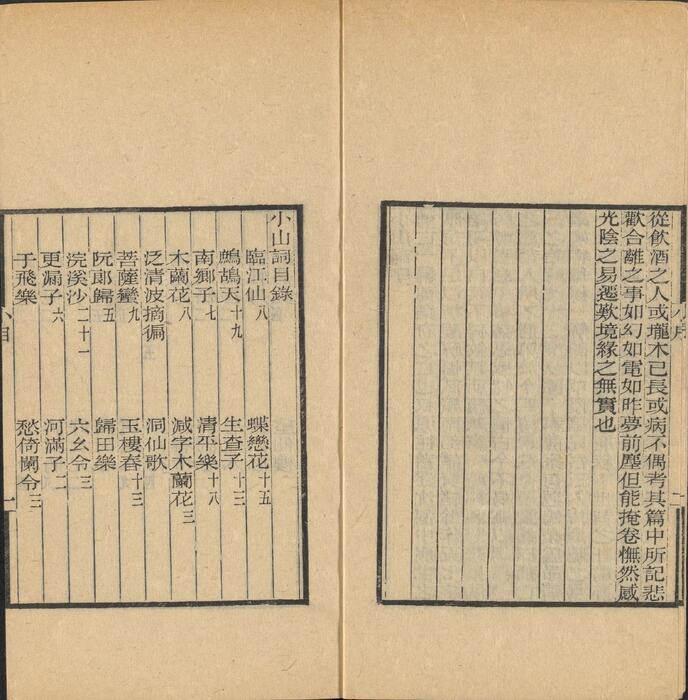 從飲酒之人或壠木已長或病不偶者其篇中所記悲
歡合離之事如幻如電如昨夢前塵但能掩卷憮然感
光陰之易遷歎境緣之無實也
小山詞目錄
臨江仙八 蝶戀花十五
鷓鴣天十九 生查子十三
南鄉子七 清平樂十八
木蘭花八 減字木蘭花三
泛清波摘徧 洞仙歌
菩薩蠻九 玉樓春十三
阮郎歸五 歸田樂
浣溪沙二十一 六幺令三
更漏子六 河滿子二
于飛樂 愁倚闌令三